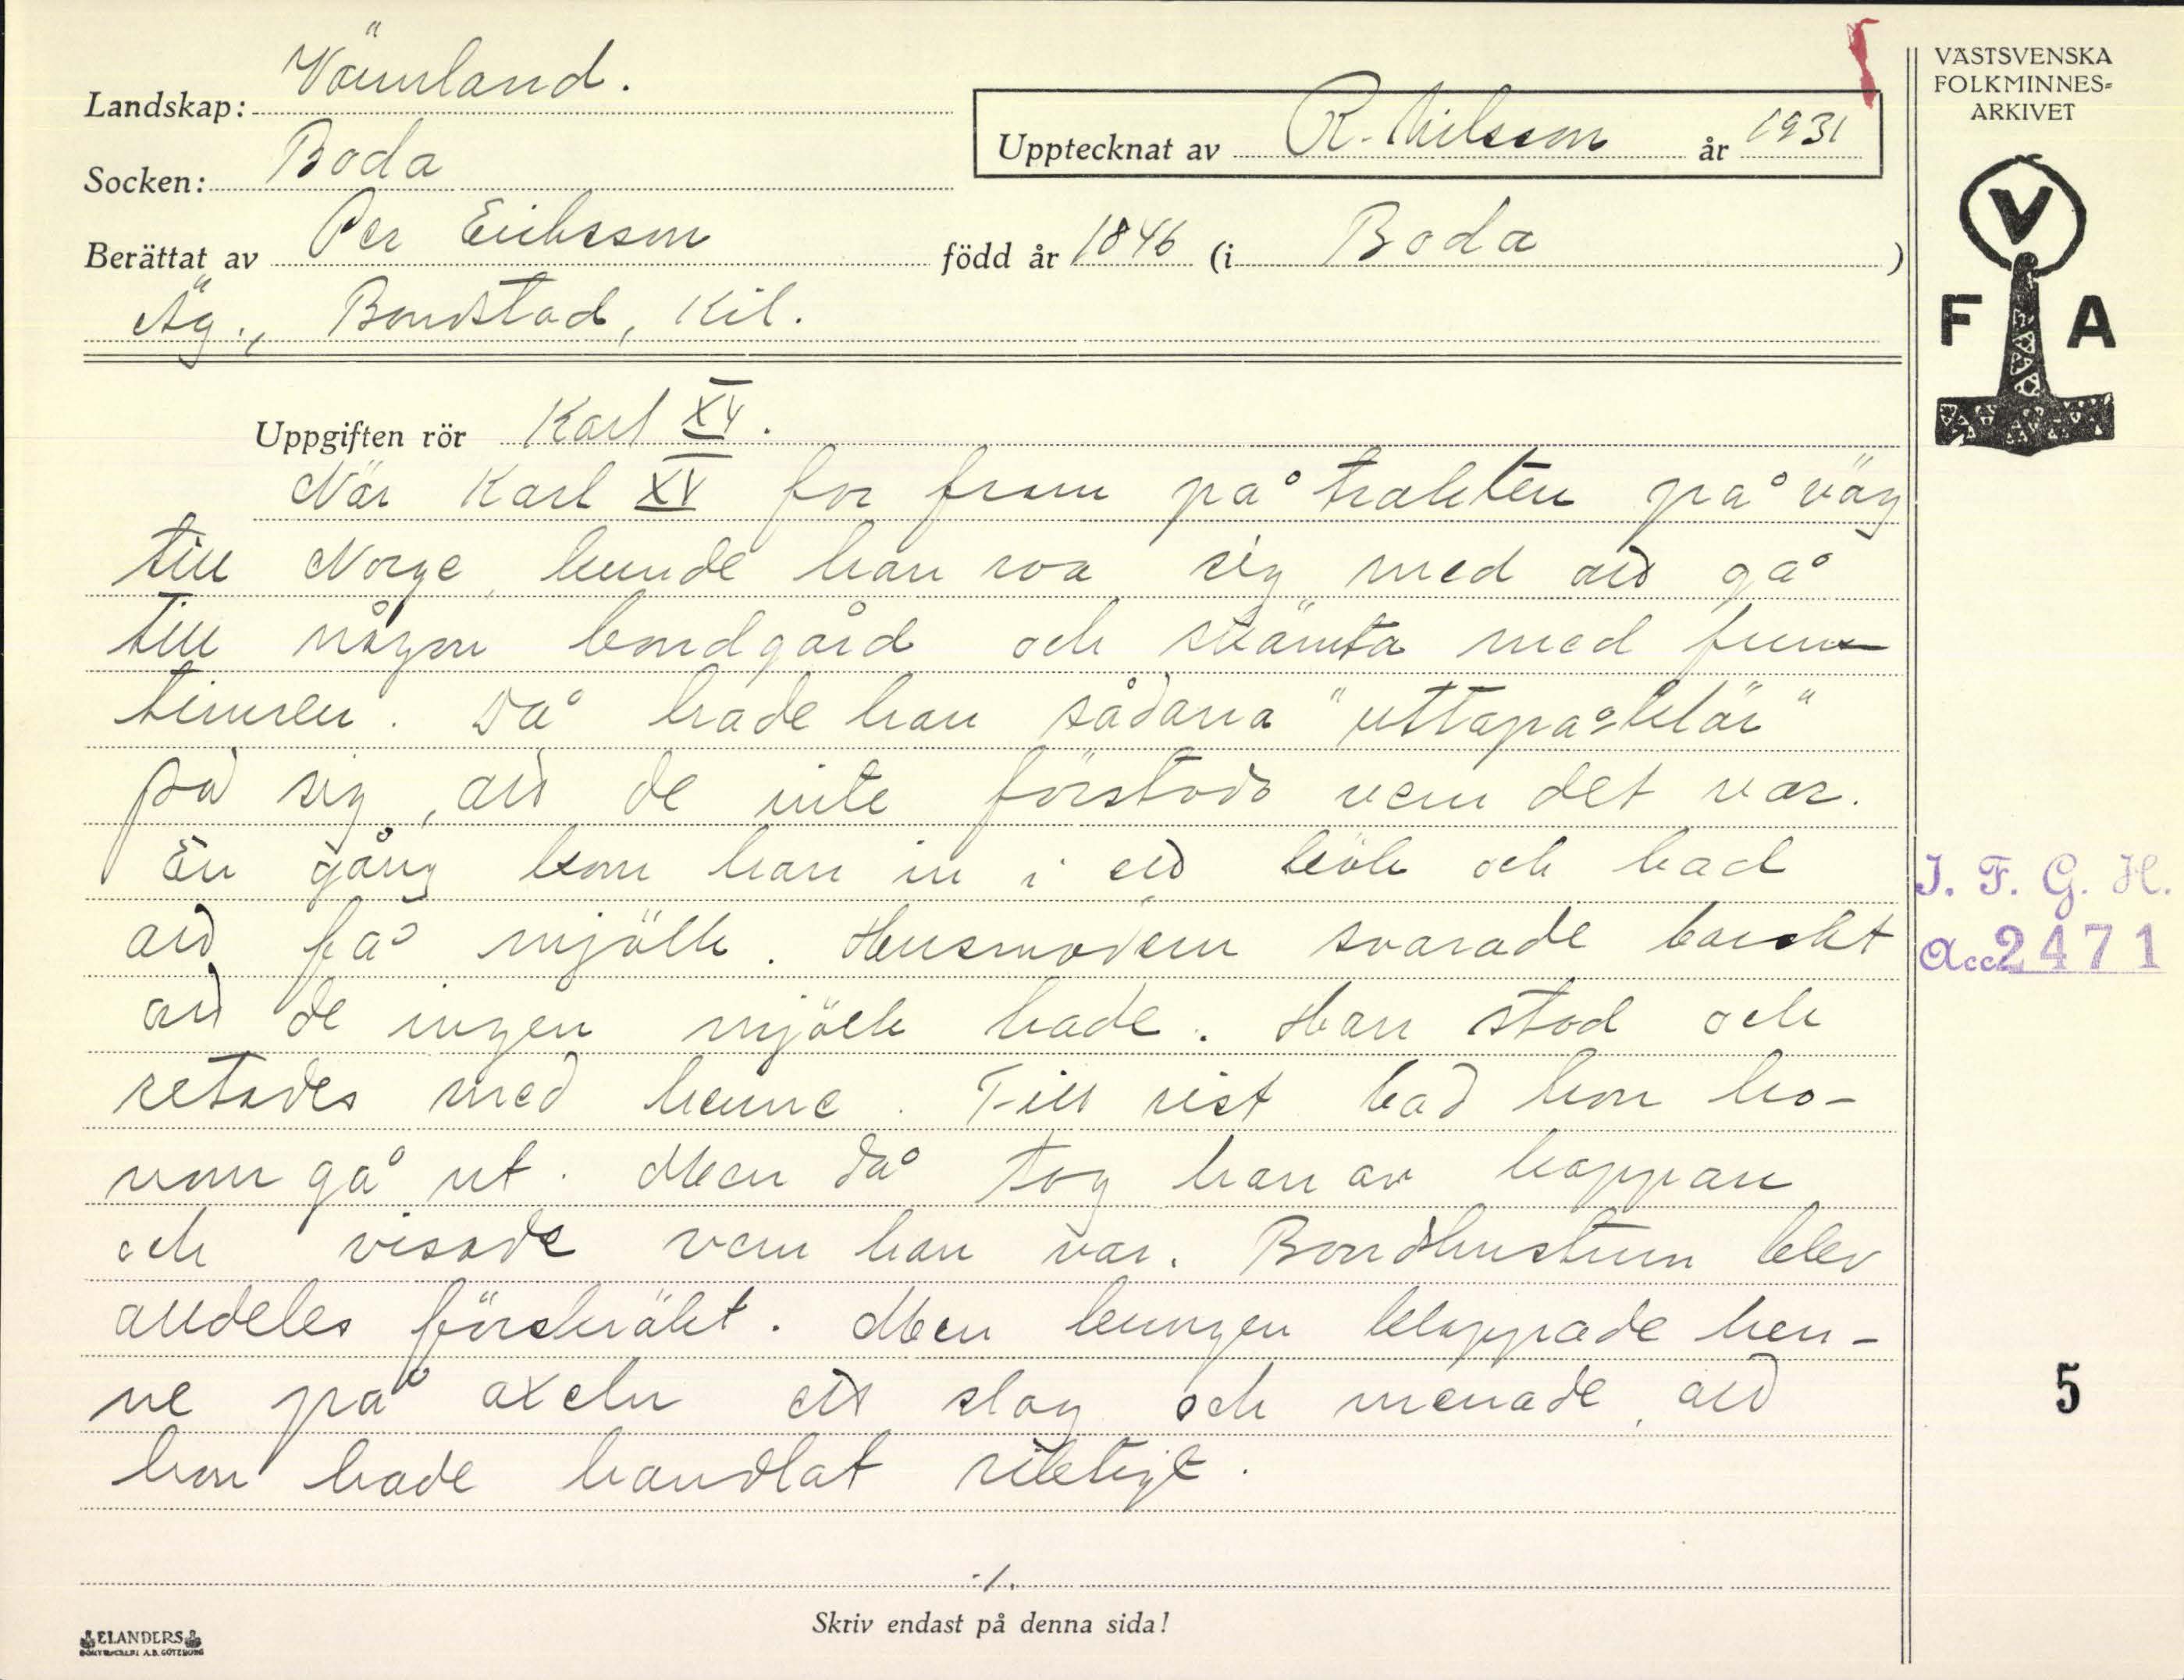 Landskap: Värmland.
Socken: Boda
Berättat av Per Eriksson
Upptecknat av R. Nilsson år 1931
född år 1846 (i Boda )
Äg., Bondstad, Kil.
Uppgiften rör Karl XV.
När Karl XV for fram på trakten på väg
till Norge, kunde han roa sig med att gå
till någon bondgård och skämta med frun-
timren. Då hade han sådana "uttapåklär"
på sig, att de inte förstodo vem det var.
En gång kom han in i ett kök och bad
att få mjölk. Husmodern svarade barskt
att de ingen mjölk hade. Han stod och
retades med henne. Till sist bad hon ho-
nom gå ut. Men då tog han av kappan
och visade vem han var. Bondhustrun blev
alldeles förskräkt. Men kungen klappade hen-
ne på axeln ett slag och menade, att
hon hade handlat riktigt.
./.
Skriv endast på denna sida!
ELANDERS
BOKTRYCKERI A.B. GÖTEBORG
VÄSTSVENSKA
FOLKMINNES-
ARKIVET
V
F A
I. F. G. H.
Acc 2471
5